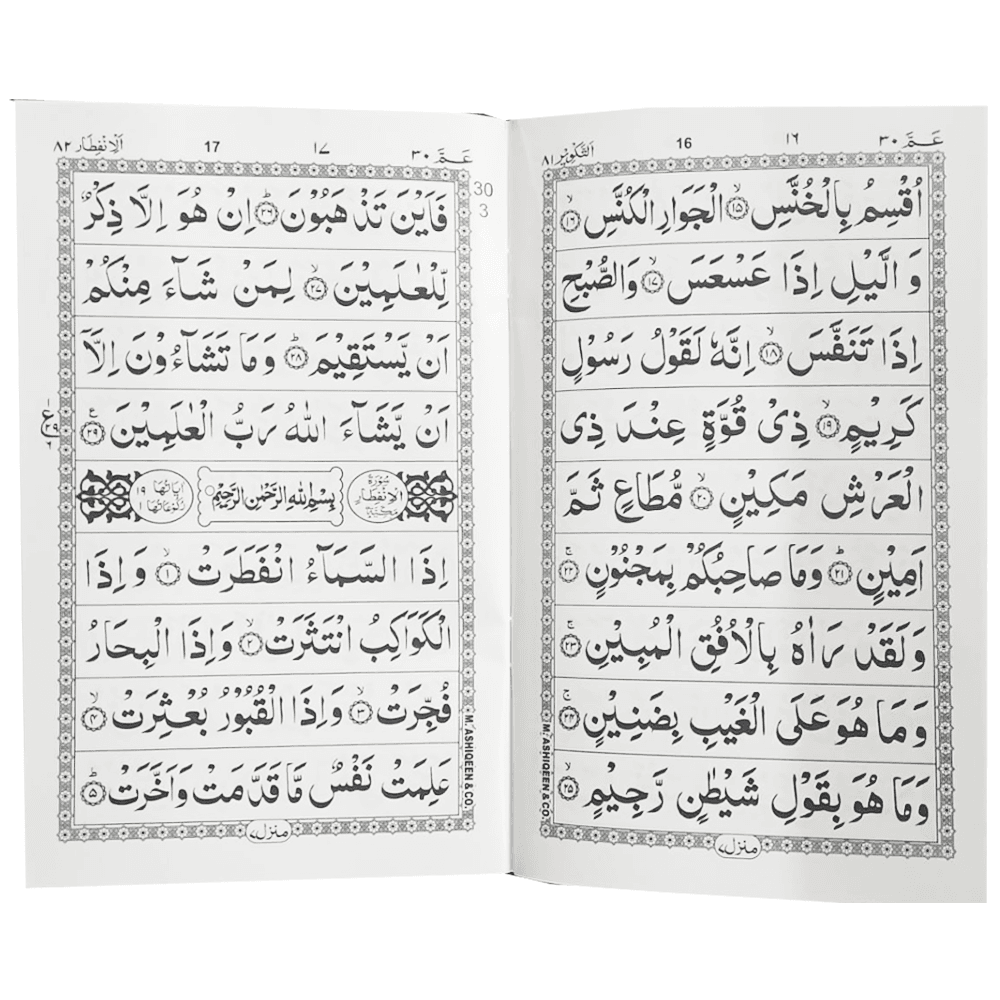 عَمَّ ٣٠ ١٦ 16 اَلتَّكْوِيْر ٨١
اُقْسِمُ بِالْخُنَّسِ ۙ‏﴿۱۵﴾ الْجَوَارِ الْكُنَّسِ ۙ‏﴿۱۶﴾
وَ الَّيْلِ اِذَا عَسْعَسَ ۙ‏﴿۱۷﴾ وَالصُّبْحِ
اِذَا تَنَفَّسَ ۙ‏﴿۱۸﴾ اِنَّهٗ لَقَوْلُ رَسُوْلٍ
كَرِيْمٍ ۙ‏﴿۱۹﴾ ذِىْ قُوَّةٍ عِنْدَ ذِى
الْعَرْشِ مَكِيْنٍ ۙ‏﴿۲۰﴾ مُّطَاعٍ ثَمَّ
اَمِيْنٍ ؕ‏﴿۲۱﴾ وَمَا صَاحِبُكُمْ بِمَجْنُوْنٍ ۚ‏﴿۲۲﴾
وَلَقَدْ رَاٰهُ بِالْاُفُقِ الْمُبِيْنِ ۚ‏﴿۲۳﴾
وَمَا هُوَ عَلَى الْغَيْبِ بِضَنِيْنٍ ۚ‏﴿۲۴﴾
وَمَا هُوَ بِقَوْلِ شَيْطٰنٍ رَّجِيْمٍ ۙ‏﴿۲۵﴾
منزل ٧
M. ASHIQEEN & CO.
عَمَّ ٣٠ ١٧ 17 اَلْاِنْفِطَار ٨٢
30
3
فَاَيْنَ تَذْهَبُوْنَ ؕ‏﴿۲۶﴾ اِنْ هُوَ اِلَّا ذِكْرٌ
لِّلْعٰلَمِيْنَ ۙ‏﴿۲۷﴾ لِمَنْ شَآءَ مِنْكُمْ
اَنْ يَّسْتَقِيْمَ ؕ‏﴿۲۸﴾ وَمَا تَشَآءُوْنَ اِلَّاۤ
اَنْ يَّشَآءَ اللّٰهُ رَبُّ الْعٰلَمِيْنَ ‏﴿۲۹﴾ ع
سُوْرَةُ الْاِنْفِطَارِ مَكِّيَّةٌ بِسْمِ اللّٰهِ الرَّحْمٰنِ الرَّحِيْمِ اٰيَاتُهَا ١٩ رُكُوْعَاتُهَا ١
اِذَا السَّمَآءُ انْفَطَرَتْ ۙ‏﴿۱﴾ وَاِذَا
الْكَوَاكِبُ انْتَثَرَتْ ۙ‏﴿۲﴾ وَاِذَا الْبِحَارُ
فُجِّرَتْ ۙ‏﴿۳﴾ وَاِذَا الْقُبُوْرُ بُعْثِرَتْ ۙ‏﴿۴﴾
عَلِمَتْ نَفْسٌ مَّا قَدَّمَتْ وَاَخَّرَتْ ؕ‏﴿۵﴾
منزل ٧
M. ASHIQEEN & CO.